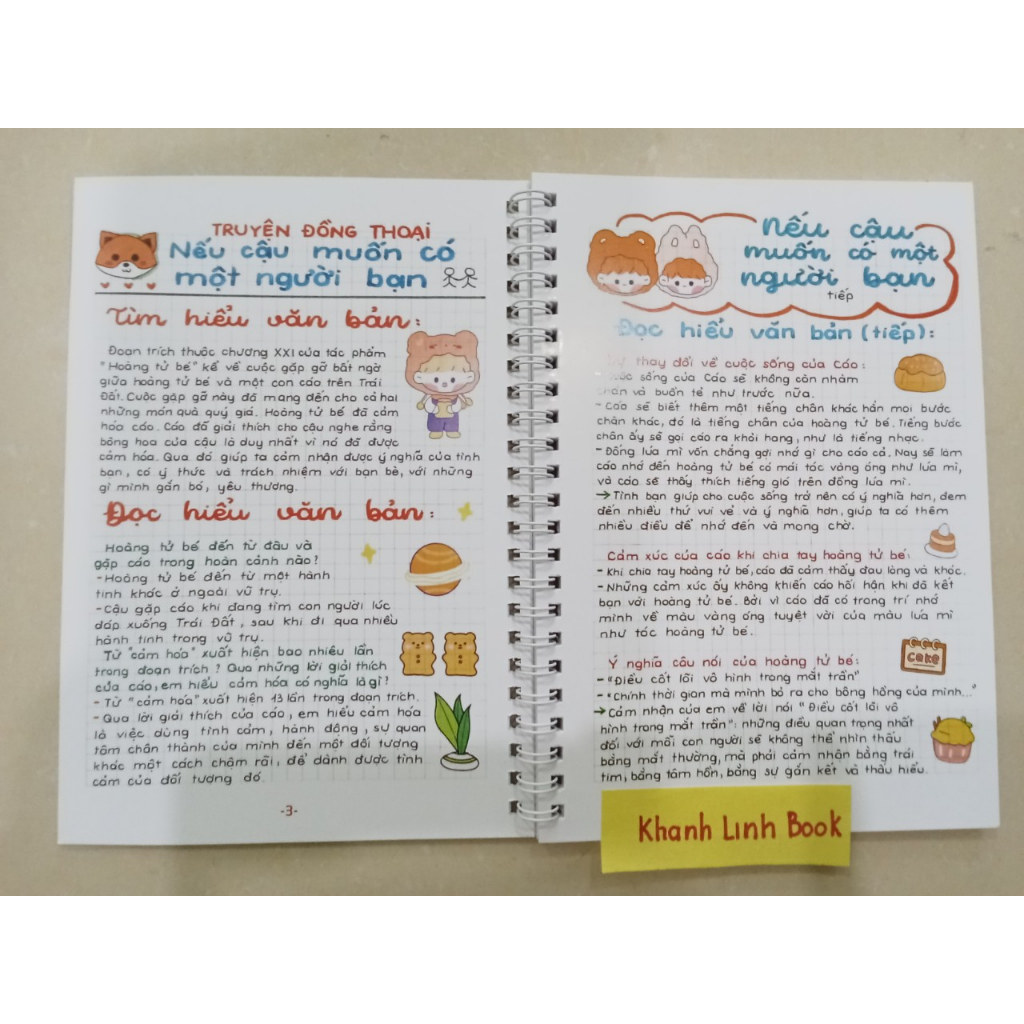 TRUYỆN ĐỒNG THOẠI
Nếu cậu muốn có
một người bạn
Tìm hiểu văn bản:
Đoạn trích thuộc chương XXI của tác phẩm
"Hoàng tử bé" kể về cuộc gặp gỡ bất ngờ
giữa hoàng tử bé và một con cáo trên Trái
Đất. Cuộc gặp gỡ này đã mang đến cho cả hai
những món quà quý giá. Hoàng tử bé đã cảm
hóa cáo. Cáo đã giải thích cho cậu nghe rằng
bông hoa của cậu là duy nhất vì nó đã được
cảm hóa. Qua đó giúp ta cảm nhận được ý nghĩa của tình
bạn, có ý thức và trách nhiệm với bạn bè, với những
gì mình gắn bó, yêu thương.
Đọc hiểu văn bản:
Hoàng tử bé đến từ đâu và
gặp cáo trong hoàn cảnh nào?
-Hoàng tử bé đến từ một hành
tinh khác ở ngoài vũ trụ.
-Cậu gặp cáo khi đang tìm con người lúc
đáp xuống Trái Đất, sau khi đi qua nhiều
hành tinh trong vũ trụ.
Từ "cảm hóa" xuất hiện bao nhiêu lần
trong đoạn trích? Qua những lời giải thích
của cáo, em hiểu cảm hóa có nghĩa là gì?
- Từ "cảm hóa" xuất hiện 13 lần trong đoạn trích.
- Qua lời giải thích của cáo, em hiểu cảm hóa
là việc dùng tình cảm, hành động, sự quan
tâm chân thành của mình đến một đối tượng
khác một cách chậm rãi, để dành được tình
cảm của đối tượng đó.
-3-
Nếu cậu
muốn có một
người bạn
tiếp
Đọc hiểu văn bản (tiếp):
thay đổi về cuộc sống của Cáo:
sống của Cáo sẽ không còn nhàm
chán và buồn tẻ như trước nữa.
- Cáo sẽ biết thêm một tiếng chân khác hẳn mọi bước
chân khác, đó là tiếng chân của hoàng tử bé. Tiếng bước
chân ấy sẽ gọi cáo ra khỏi hang, như là tiếng nhạc.
- Đồng lúa mì vốn chẳng gợi nhớ gì cho cáo cả. Nay sẽ làm
cáo nhớ đến hoàng tử bé có mái tóc vàng óng như lúa mì,
và cáo sẽ thấy thích tiếng gió trên đồng lúa mì.
→ Tình bạn giúp cho cuộc sống trở nên có ý nghĩa hơn, đem
đến nhiều thứ vui vẻ và ý nghĩa hơn, giúp ta có thêm
nhiều điều để nhớ đến và mong chờ.
Cảm xúc của cáo khi chia tay hoàng tử bé:
- Khi chia tay hoàng tử bé, cáo đã cảm thấy đau lòng và khóc.
- Những cảm xúc ấy không khiến cáo hối hận khi đã kết
bạn với hoàng tử bé. Bởi vì cáo đã có trong trí nhớ
mình về màu vàng óng tuyệt vời của màu lúa mì
như tóc hoàng tử bé.
Ý nghĩa câu nói của hoàng tử bé:
- "Điều cốt lõi vô hình trong mắt trần"
- "Chính thời gian mà mình bỏ ra cho bông hồng của mình..."
→ Cảm nhận của em về lời nói "Điều cốt lõi vô
hình trong mắt trần": những điều quan trọng nhất
đối với mỗi con người sẽ không thể nhìn thấu
bằng mắt thường, mà phải cảm nhận bằng trái
tim, bằng tâm hồn, bằng sự gắn kết và thấu hiểu.
cake
Khanh Linh Book